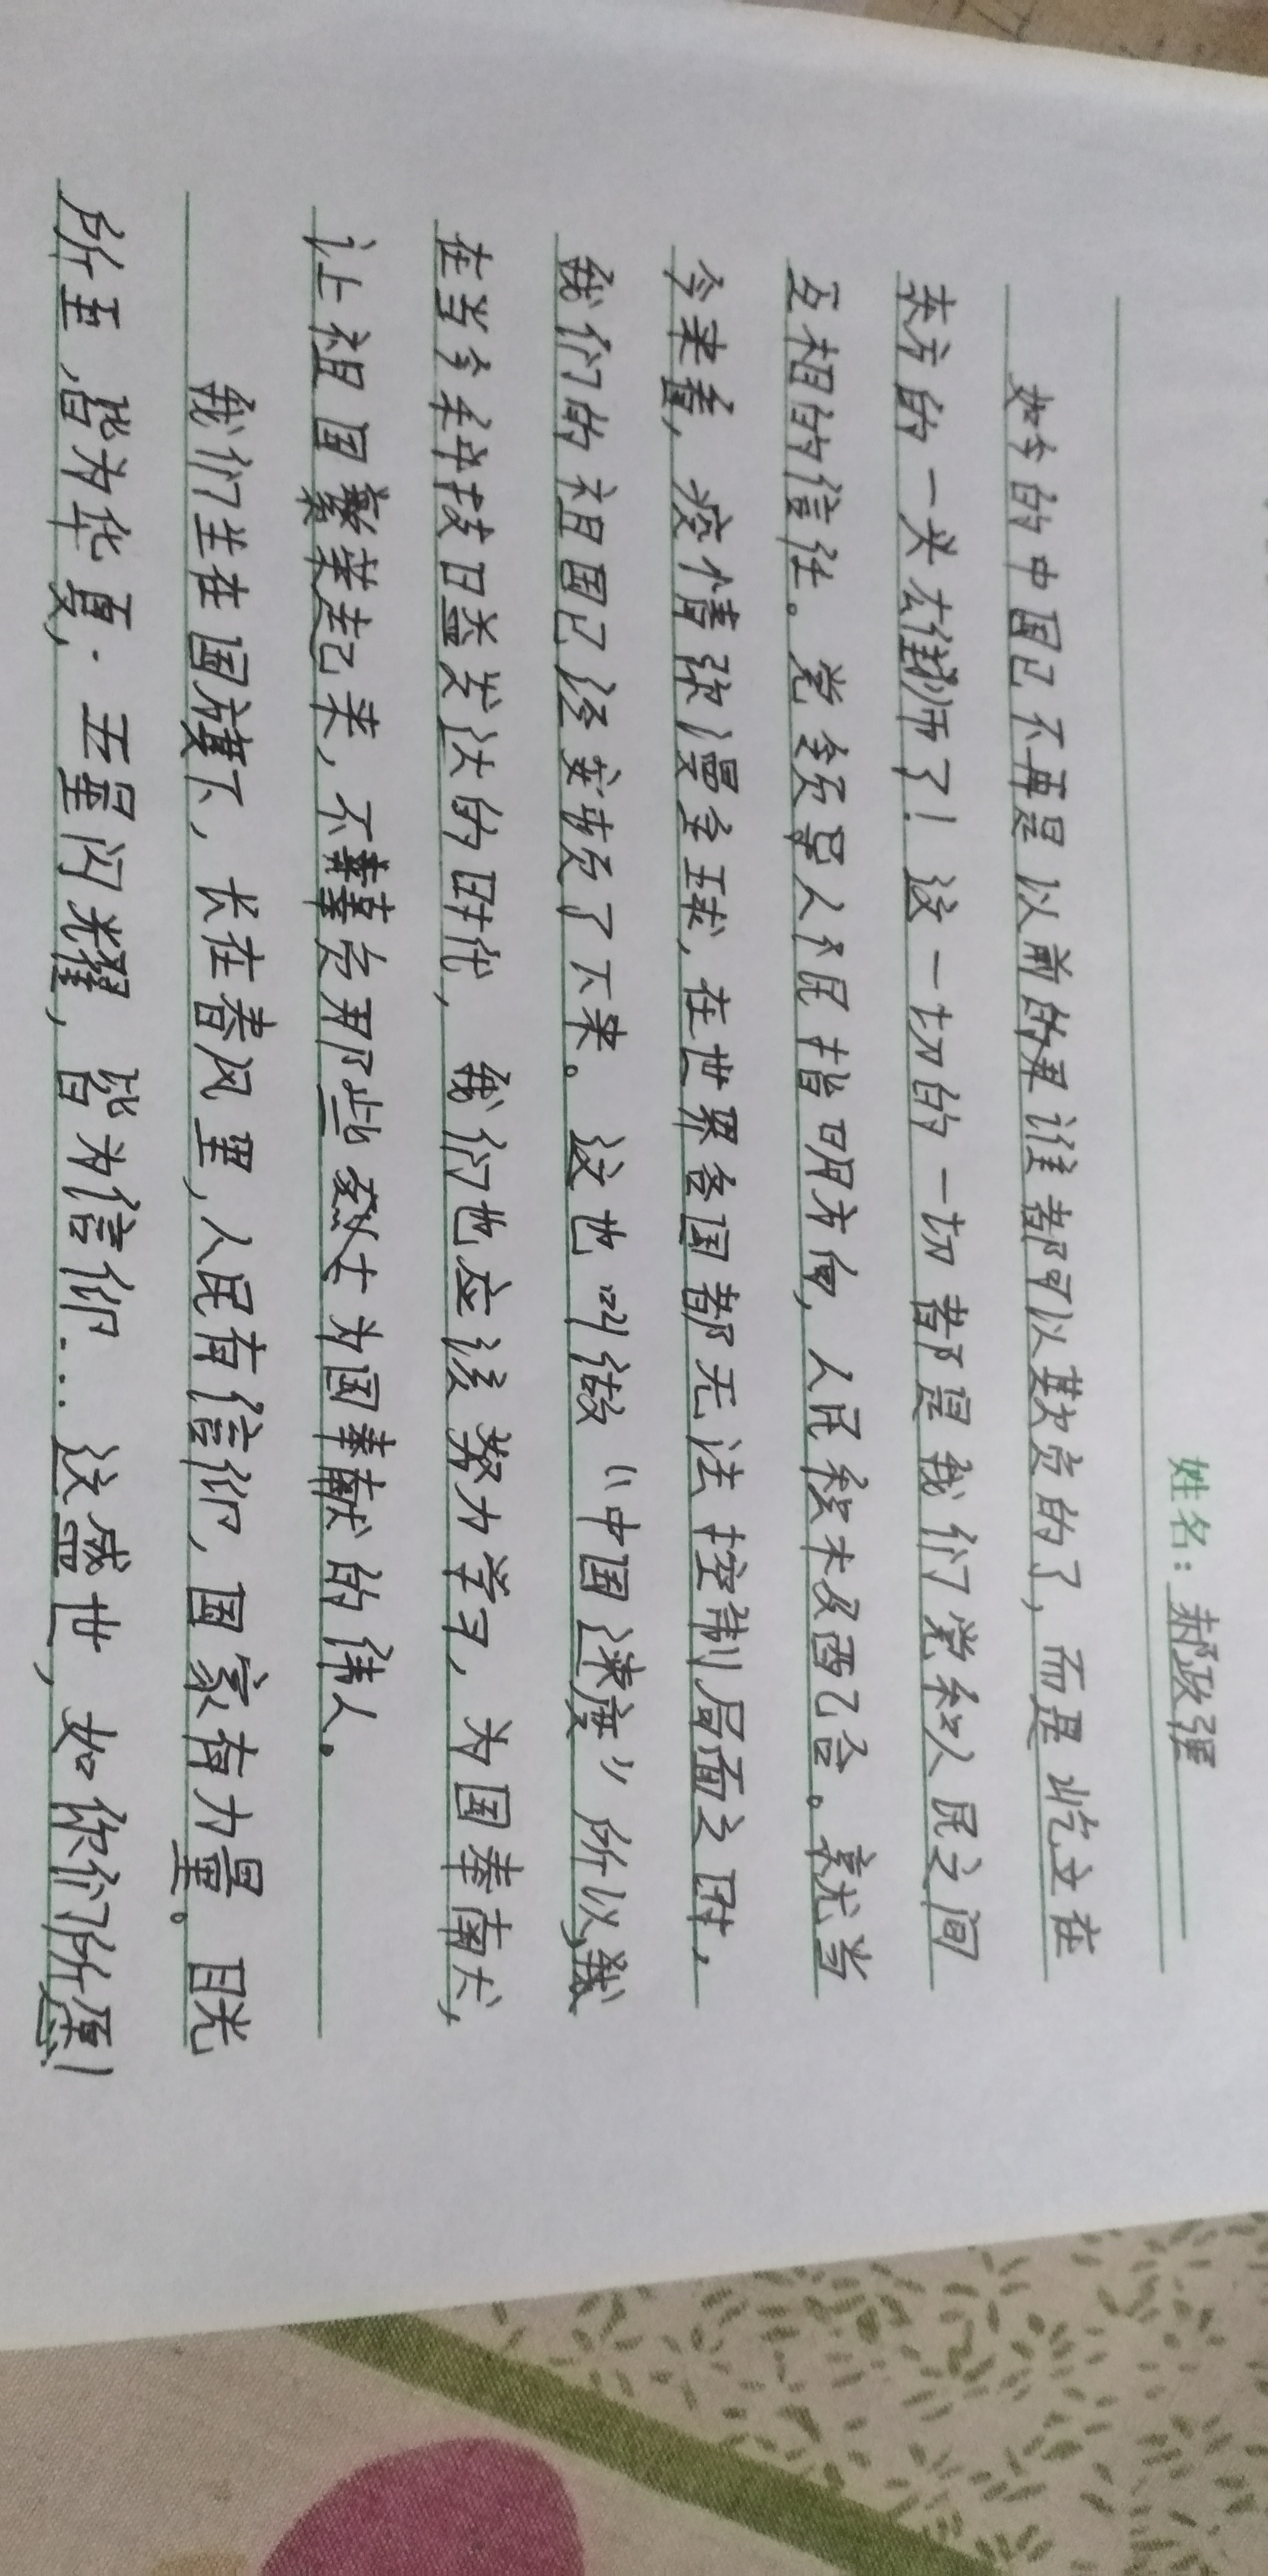 姓名：郝政强
如今的中国已不再是以前的果谁都可以欺负的了，而是屹立在
东方的一头大雄狮了！这一切的一切都是我们党和人民之间
互相的信任。党给负量人个民指明方向，人民积极及配合。就当
今来看，疫情弥漫全球，在世界各国都无法控制局面之时，
我们的祖国已经安稳了下来。这也叫做“中国速度”所以，我
在当今科技日益发达的时代，我们也应该努力学习，为国奉献，
让上祖国繁荣起来，不辜负那些逐次为国奉献的伟人。
我们生在国旗下，长在春风里，人民有信仰，国家有力量。目光
所至，皆为华夏，五星闪耀，皆为信仰... 这盛世，如你们所愿！